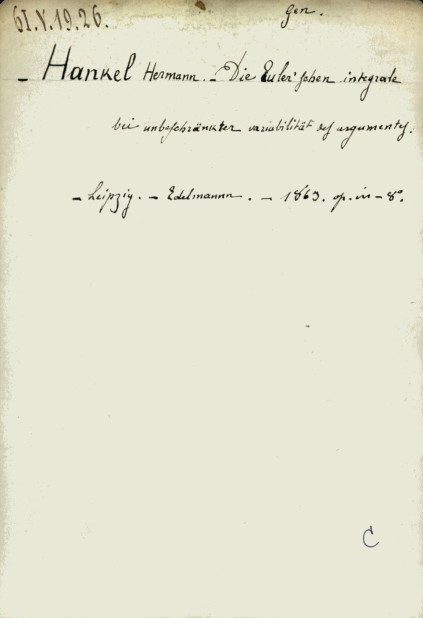 61.V.19.26.
gen.
- Hankel Hermann. - Die Euler'schen integrale
bei unbeschränkter variabilität des argumentes.
- Leipzig. - Edelmannn. - 1863. op. in - 8°.
C